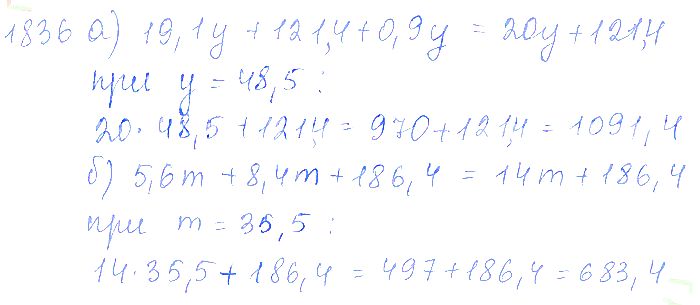 1836 а) 19,1y + 121,4 + 0,9y = 20y + 121,4
при y = 48,5 :
20 · 48,5 + 121,4 = 970 + 121,4 = 1091,4
б) 5,6m + 8,4m + 186,4 = 14m + 186,4
при m = 35,5 :
14 · 35,5 + 186,4 = 497 + 186,4 = 683,4